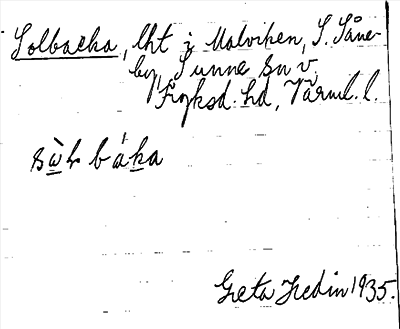 Solbacka, lht i Malviken, S. Såne-
by, Sunne sn v.
Fryksd. hd, Värml. l.
båka
Greta Hedin 1935.